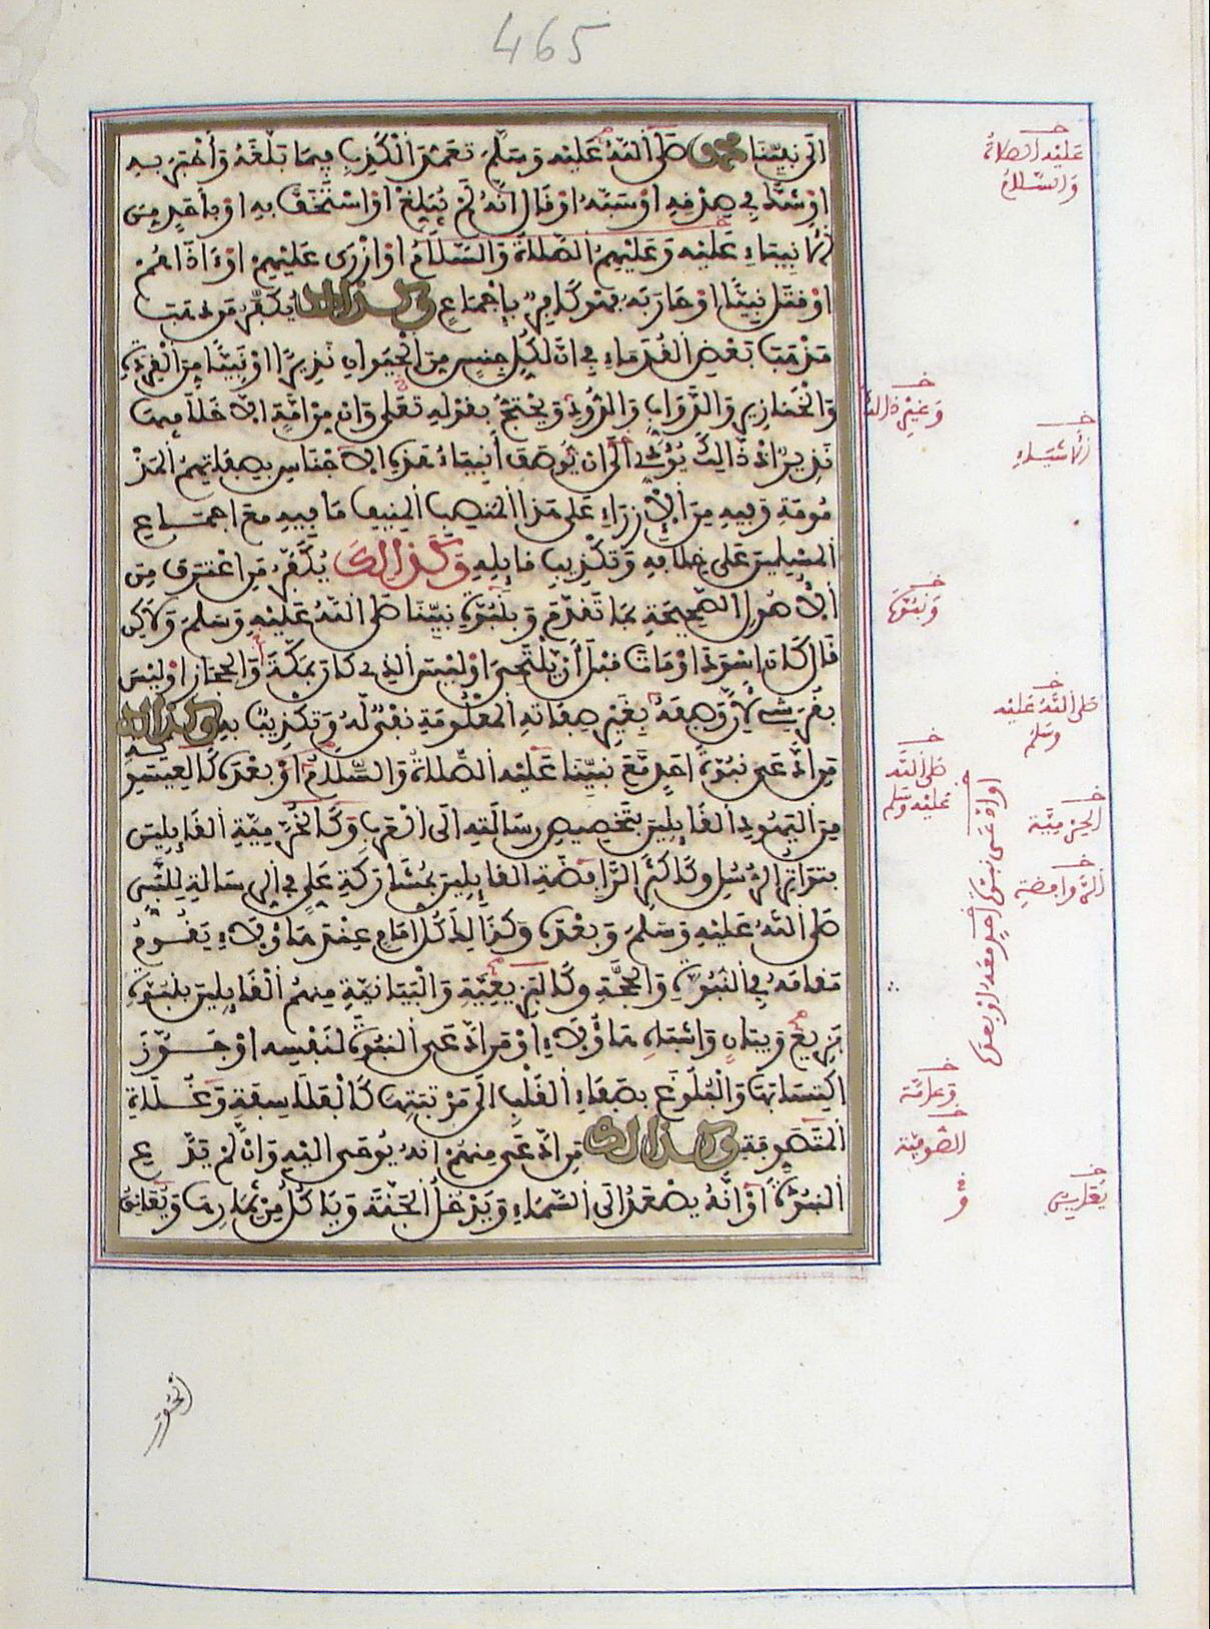 465
الى نبينا محمد صلى الله عليه وسلم تعمد الكذب فيما بلغه وأخبر به
او شك في صدقه او سبه او قال انه لم يبلغ او استخف به او بأحد من
الانبياء عليه وعليهم الصلاة والسلام او ازرى عليهم او ءاذاهم
او قتل نبيئا او حاربه فهو كافر بإجماع وكذالك يكفر من ذهب
مذهب بعض القدماء في ان لكل جنس من الحيوان نذيرا او نبيئا من القردة
والخنازير والدواب والدود ويحتج بقوله تعلى وان من امة الا خلا فيها
نذير اذ ذالك يؤدي الى ان يوصف أنبياء هذه الاجناس بصفاتهم المذ
مومة وفيه من الازراء على هذا المنصب المنيف ما فيه مع اجماع
المسلمين على خلافه وتكذيب قايله وكذالك يكفر من اعترف من
الاصول الصحيحة بما تقدم وبنبوة نبينا صلى الله عليه وسلم ولاكن
قال كان اسود او مات قبل أن يلتحي او ليس الذي كان بمكة والحجاز او ليس
بقرشي لأن وصفه بغير صفاته المعلومة نفي له وتكذيب به وكذالك
من ادعى نبوة احد مع نبينا عليه الصلاة والسلام او بعده كالعيسوية
من اليهود القايلين بتخصيص رسالته الى العرب وكالخرمية القايلين
بتواتر الرسل وكأكثر الرافضة القايلين بمشاركة علي في الرسالة للنبي
صلى الله عليه وسلم وبعده وكذالك كل امام عند هاؤلاء يقوم
مقامه في النبوة والحجة وكالبزيغية والبيانية منهم القايلين بنبوة
بزيغ وبيان واشباه هاؤلاء او من ادعى النبوة لنفسه او جوز
اكتسابها والبلوغ بصفاء القلب الى مرتبتها كالفلاسفة وغلاة
المتصوفة وكذالك من ادعى منهم انه يوحى اليه وان لم يدع
النبوة او أنه يصعد الى السماء ويدخل الجنة ويأكل من ثمارها ويعانق
عليه الصلاة
والسلام
وغير ذالك
الاشياء
ونبوة
صلى الله عليه
وسلم
صلى الله
عليه وسلم
او ادعى نبوة احد معه او بعده
الجرمية
الروافضة
وعامة
الصوفية
و
الحور